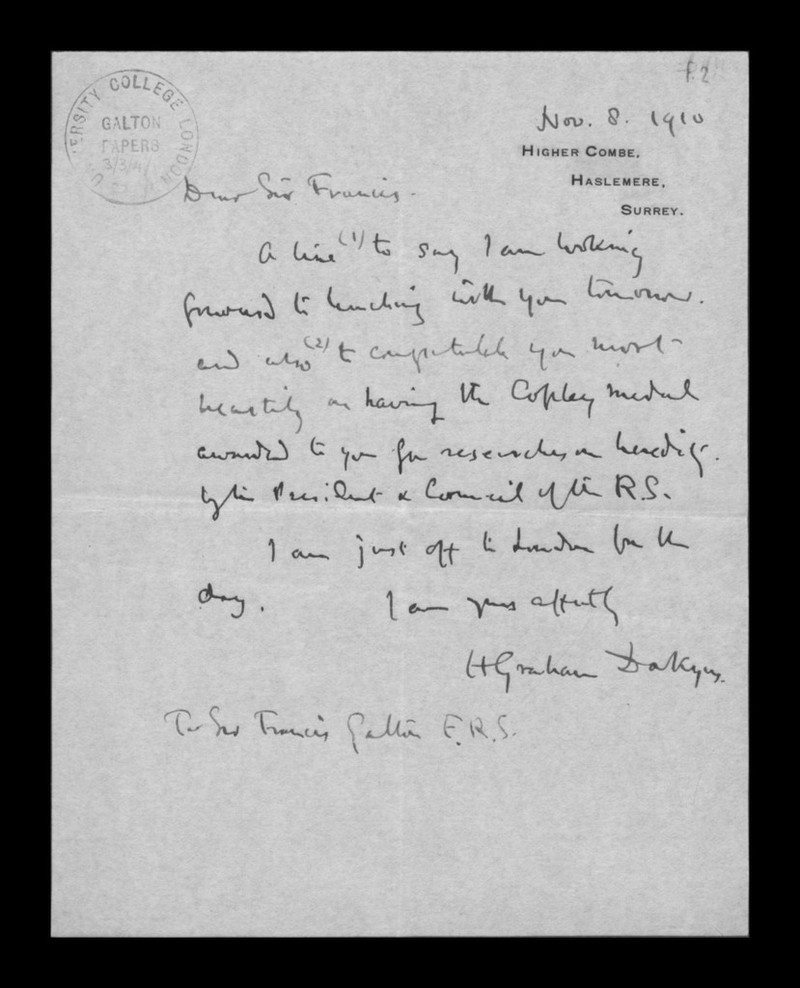 f.2
UNIVERSITY COLLEGE LONDON
GALTON
PAPERS
3/3/4/
Nov. 8. 1910
HIGHER COMBE,
HASLEMERE,
SURREY.
Dear Sir Francis.
A line (1) to say I am looking
forward to lunching with you tomorrow.
and also (2) to congratulate you most
heartily on having the Copley medal
awarded to you for researches on heredity.
by the President & Council of the R.S.
I am just off to London for the
day. I am yrs affectly
HGraham Dakyns.
To Sir Francis Galton F.R.S.